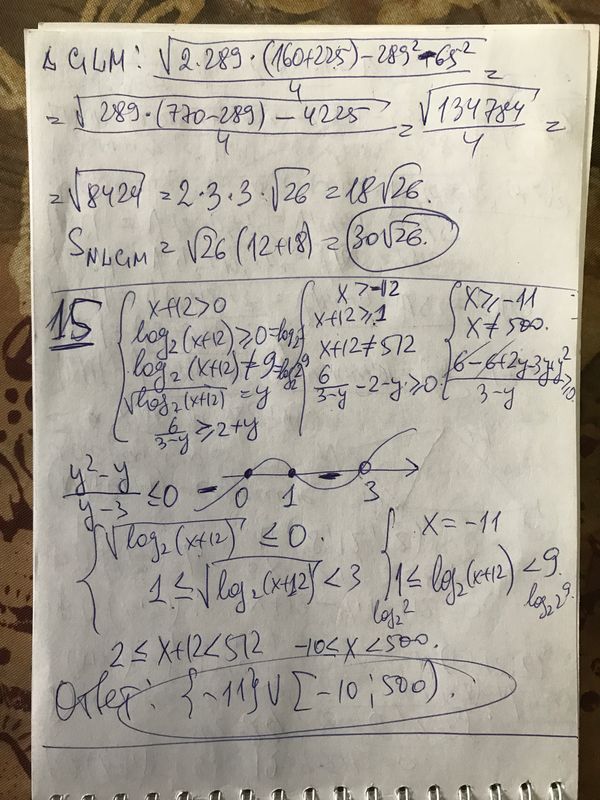 Δ GLM: √(2·289·(160+225)−289²−65²)/4 =
= √(289·(770−289)−4225)/4 = √134784/4 =
= √8424 = 2·3·3·√26 = 18√26.
S NLGM = √26 (12+18) = 30√26.
15
{ x+12>0
log₂(x+12)≥0=log₂1
log₂(x+12)≠9=log₂2⁹
√log₂(x+12) = y
6/(3−y) ≥ 2+y
{ x>−12
x+12≥1
x+12≠512
6/(3−y) −2−y≥0
{ x≥−11
x≠500.
(6−6+2y−3y+y²)/(3−y) ≥0
(y²−y)/(y−3) ≤0
− 0 1 − 3
{ √log₂(x+12) ≤ 0
1 ≤ √log₂(x+12) < 3
{ x = −11
1 ≤ log₂(x+12) < 9.
log₂2 log₂2⁹
2 ≤ x+12<512 −10≤x<500.
Ответ: {−11}∪[−10; 500).